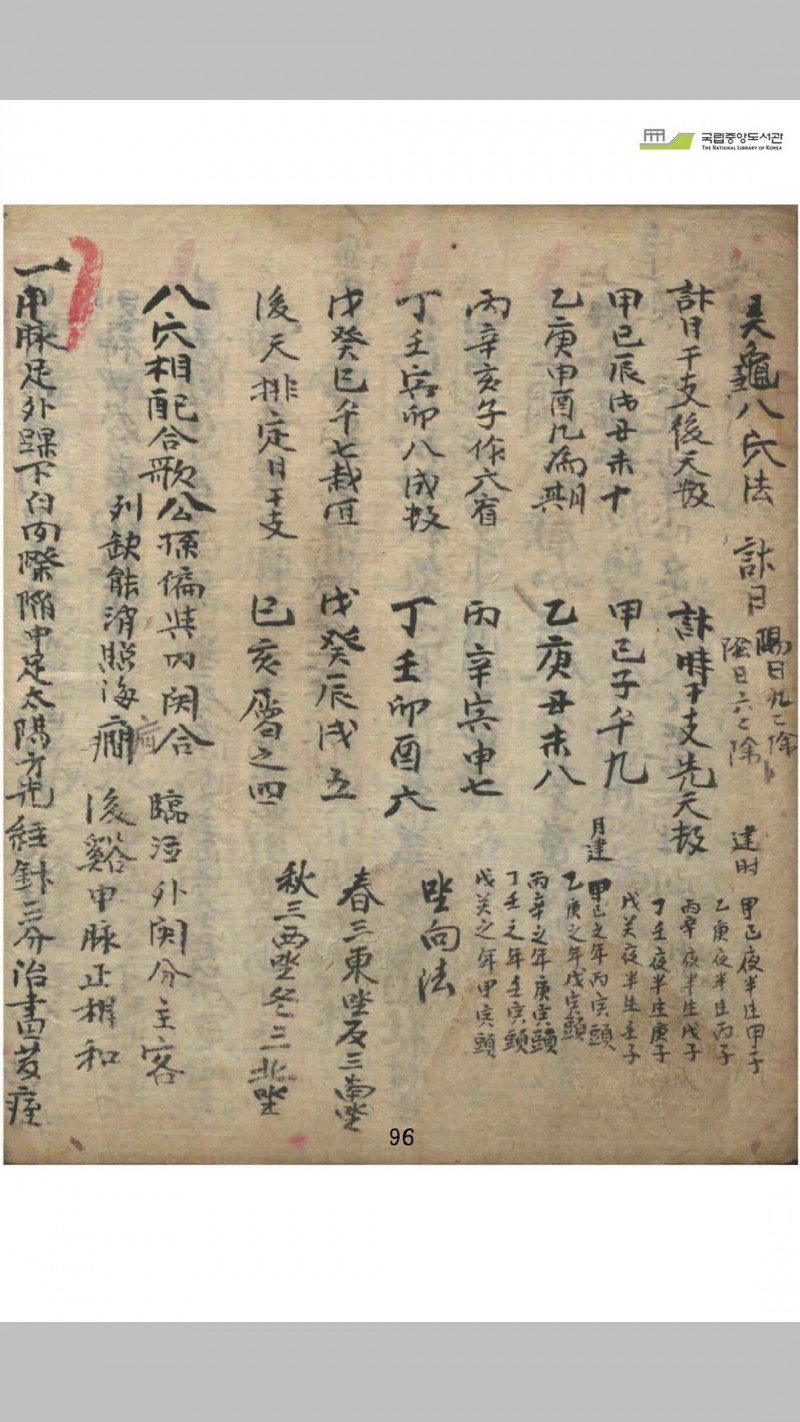 국립중앙도서관
THE NATIONAL LIBRARY OF KOREA
灵龜八穴法 計日 陽日九ヒ除
陰日六ヒ除
建时 甲己夜半生甲子
乙庚夜半生丙子
丙辛夜半生戊子
丁壬夜半生庚子
戊癸夜半生壬子
計日干支後天数 計時干支先天数
甲己辰戌丑未十 甲己子午九
乙庚申酉九為期 乙庚丑未八
丙辛亥子作六宿 丙辛寅申七
丁壬寅卯八成数 丁壬卯酉六
戊癸巳午七栽 戊癸辰戌五
後天排定日干支 巳亥屬之四
月建 甲己之年丙寅頭
乙庚之年戊寅頭
丙辛之年庚寅頭
丁壬之年壬寅頭
戊癸之年甲寅頭
坐向法
春三東坐夏三南坐
秋三西坐冬三北坐
八穴相配合歌 公孫偏與内関合 臨泣外関分主客
列缺能消照海痾 後谿申脉正相和
一申脉足外踝下白肉際陥中足太陽方光経針三分治晝發痓
96